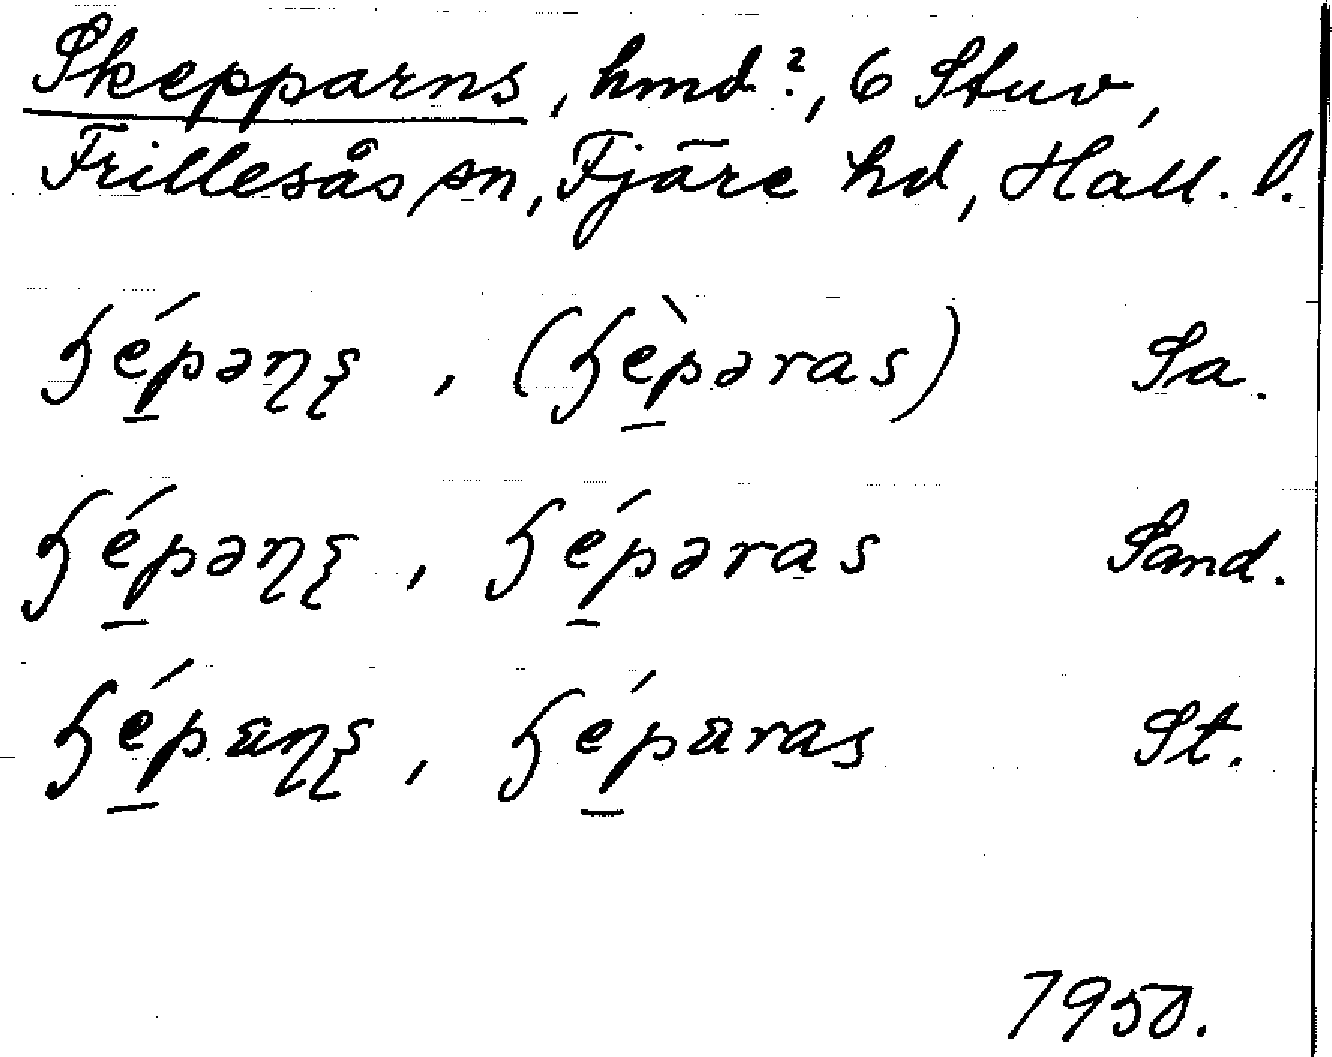 Skepparns, hmd?, 6 Stuv,
Frillesås sn, Fjäre hd, Hall. l.
ɧép̱əɳʂ, (ɧèp̱əras) Sa.
ɧép̱əɳʂ, ɧép̱əras Sand.
ɧép̱aɳʂ, ɧép̱aras St.
1950.